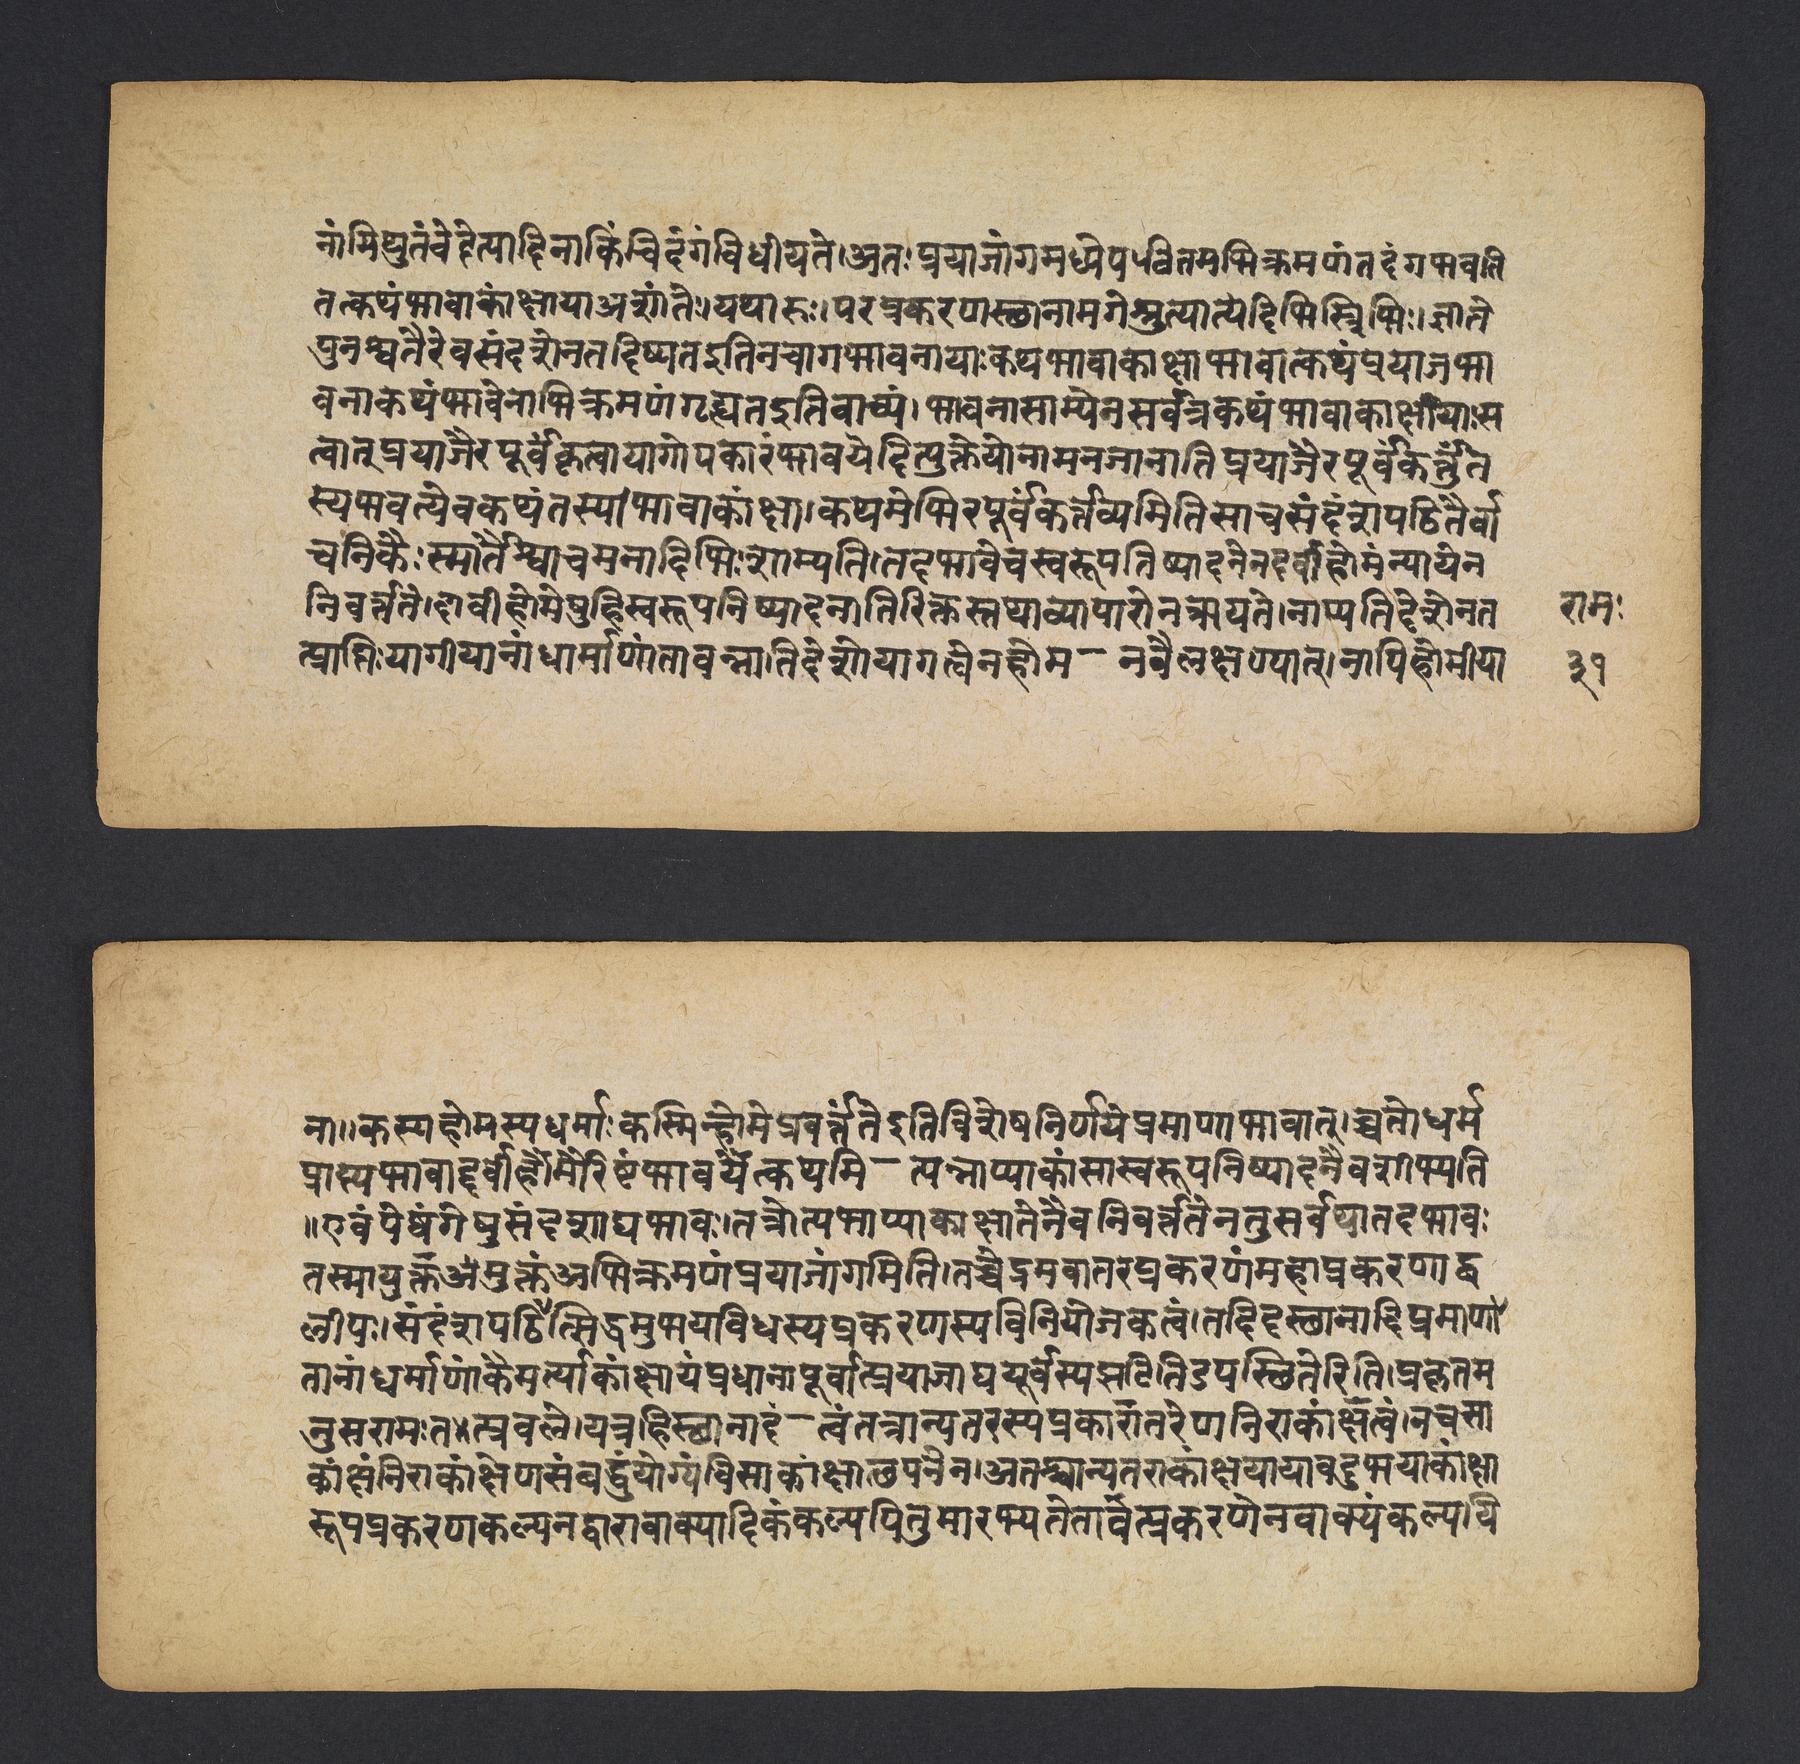 नांमिथुतंवेदेत्यादिनाकिंचिदंगंविधीयते।अतःप्रयाजांगमध्येपठितमभिक्रमणंतदंगंभवति
तत्कथंभावाकांक्षायाअशांतेः।यथाहुः।परप्रकरणस्छानामगेश्रुत्यात्येदिभिस्त्रिभिः।ज्ञाते
पुनश्चतैरेवसंदंशेनतदिष्यतइतिनचागभावनायाःकथंभावाकाक्षाभावात्कथंप्रयाजभा
वनाकथंभावेनाभिक्रमणंगृह्यतइतिवाच्यं।भावनासाम्येनसर्वत्रकथंभावाकाक्षायाःस
त्वात्प्रयाजैरपूर्वंकृत्वायागोपकारंभावयेदित्युक्तेयोनामनजानातिप्रयाजैरपूर्वंकर्त्तुंत
स्यभवत्येवकथंतस्याभावाकांक्षा।कथमेभिरपूर्वंकर्त्तव्यमितिसाचसंदंशपठितैर्वा
चनिकैःस्मार्तैश्चाचमनादिभिःशाम्यति।तदभावेचस्वरूपनिष्पादनेनदर्वीहोमंन्यायेन
निवर्त्तते।दावीहोमेषुहिस्वरूपनिष्पादनातिरिक्तस्तथाव्यापारोनश्रूयते।नाप्यतिदेशेनत
त्प्राप्तिःयागीयानांधार्माणांतावन्नातिदेशोयागत्वेनहोम—नवैलक्षण्यात्।नापिहोमीया
रामः
३१
ना।।कस्यहोमस्यधर्माःकस्मिन्होमेप्रवर्त्तंतेइतिविशेषनिर्णयेप्रमाणाभावात्।अतोधर्म
प्राप्त्यभावाद्दर्वीहोमैरिष्टंभावयेत्कथमि—त्यन्नाप्याकांसास्वरूपनिष्पादनेनैवशाम्यति
॥एवंपेषंगेषुसंदंशाद्यभावः।तत्रोत्यन्नाप्याकाक्षातेनैवनिवर्त्ततेनतुसर्वथातदभावः
तस्मायुक्तंअंमुक्तंअभिक्रमणंप्रयाजांगमिति।तच्चेदमवातरप्रकरणंमहाप्रकरणाद्ब
लीयः।संदंशपठितत्सिद्धमुभयविधस्यप्रकरणस्यविनियोजकत्वं।तदिदस्छानादिप्रमाणा
तानांधर्माणांकैमर्त्याकांक्षायंप्रधानापूर्वात्प्रयाजाद्यपूर्वस्यझटितिउपस्छितेरिति।प्रकृतम
नुसरामःतत्प्रबले।यत्रहिस्छानादं—त्वंतत्रान्यतरस्यप्रकारांतरेणनिराकांक्षत्वं।नचसा
कांक्षंनिराकांक्षेणसंबद्धुंयोग्यंविसाकांक्षाछपनेन।अतश्चान्यतराकांक्षयायावदुभयाकांक्षा
रूपप्रकरणकल्पनद्वारावाक्यादिकंकल्पयितुमारभ्यतेतावत्प्रकरणेनवाक्यंकल्पयि